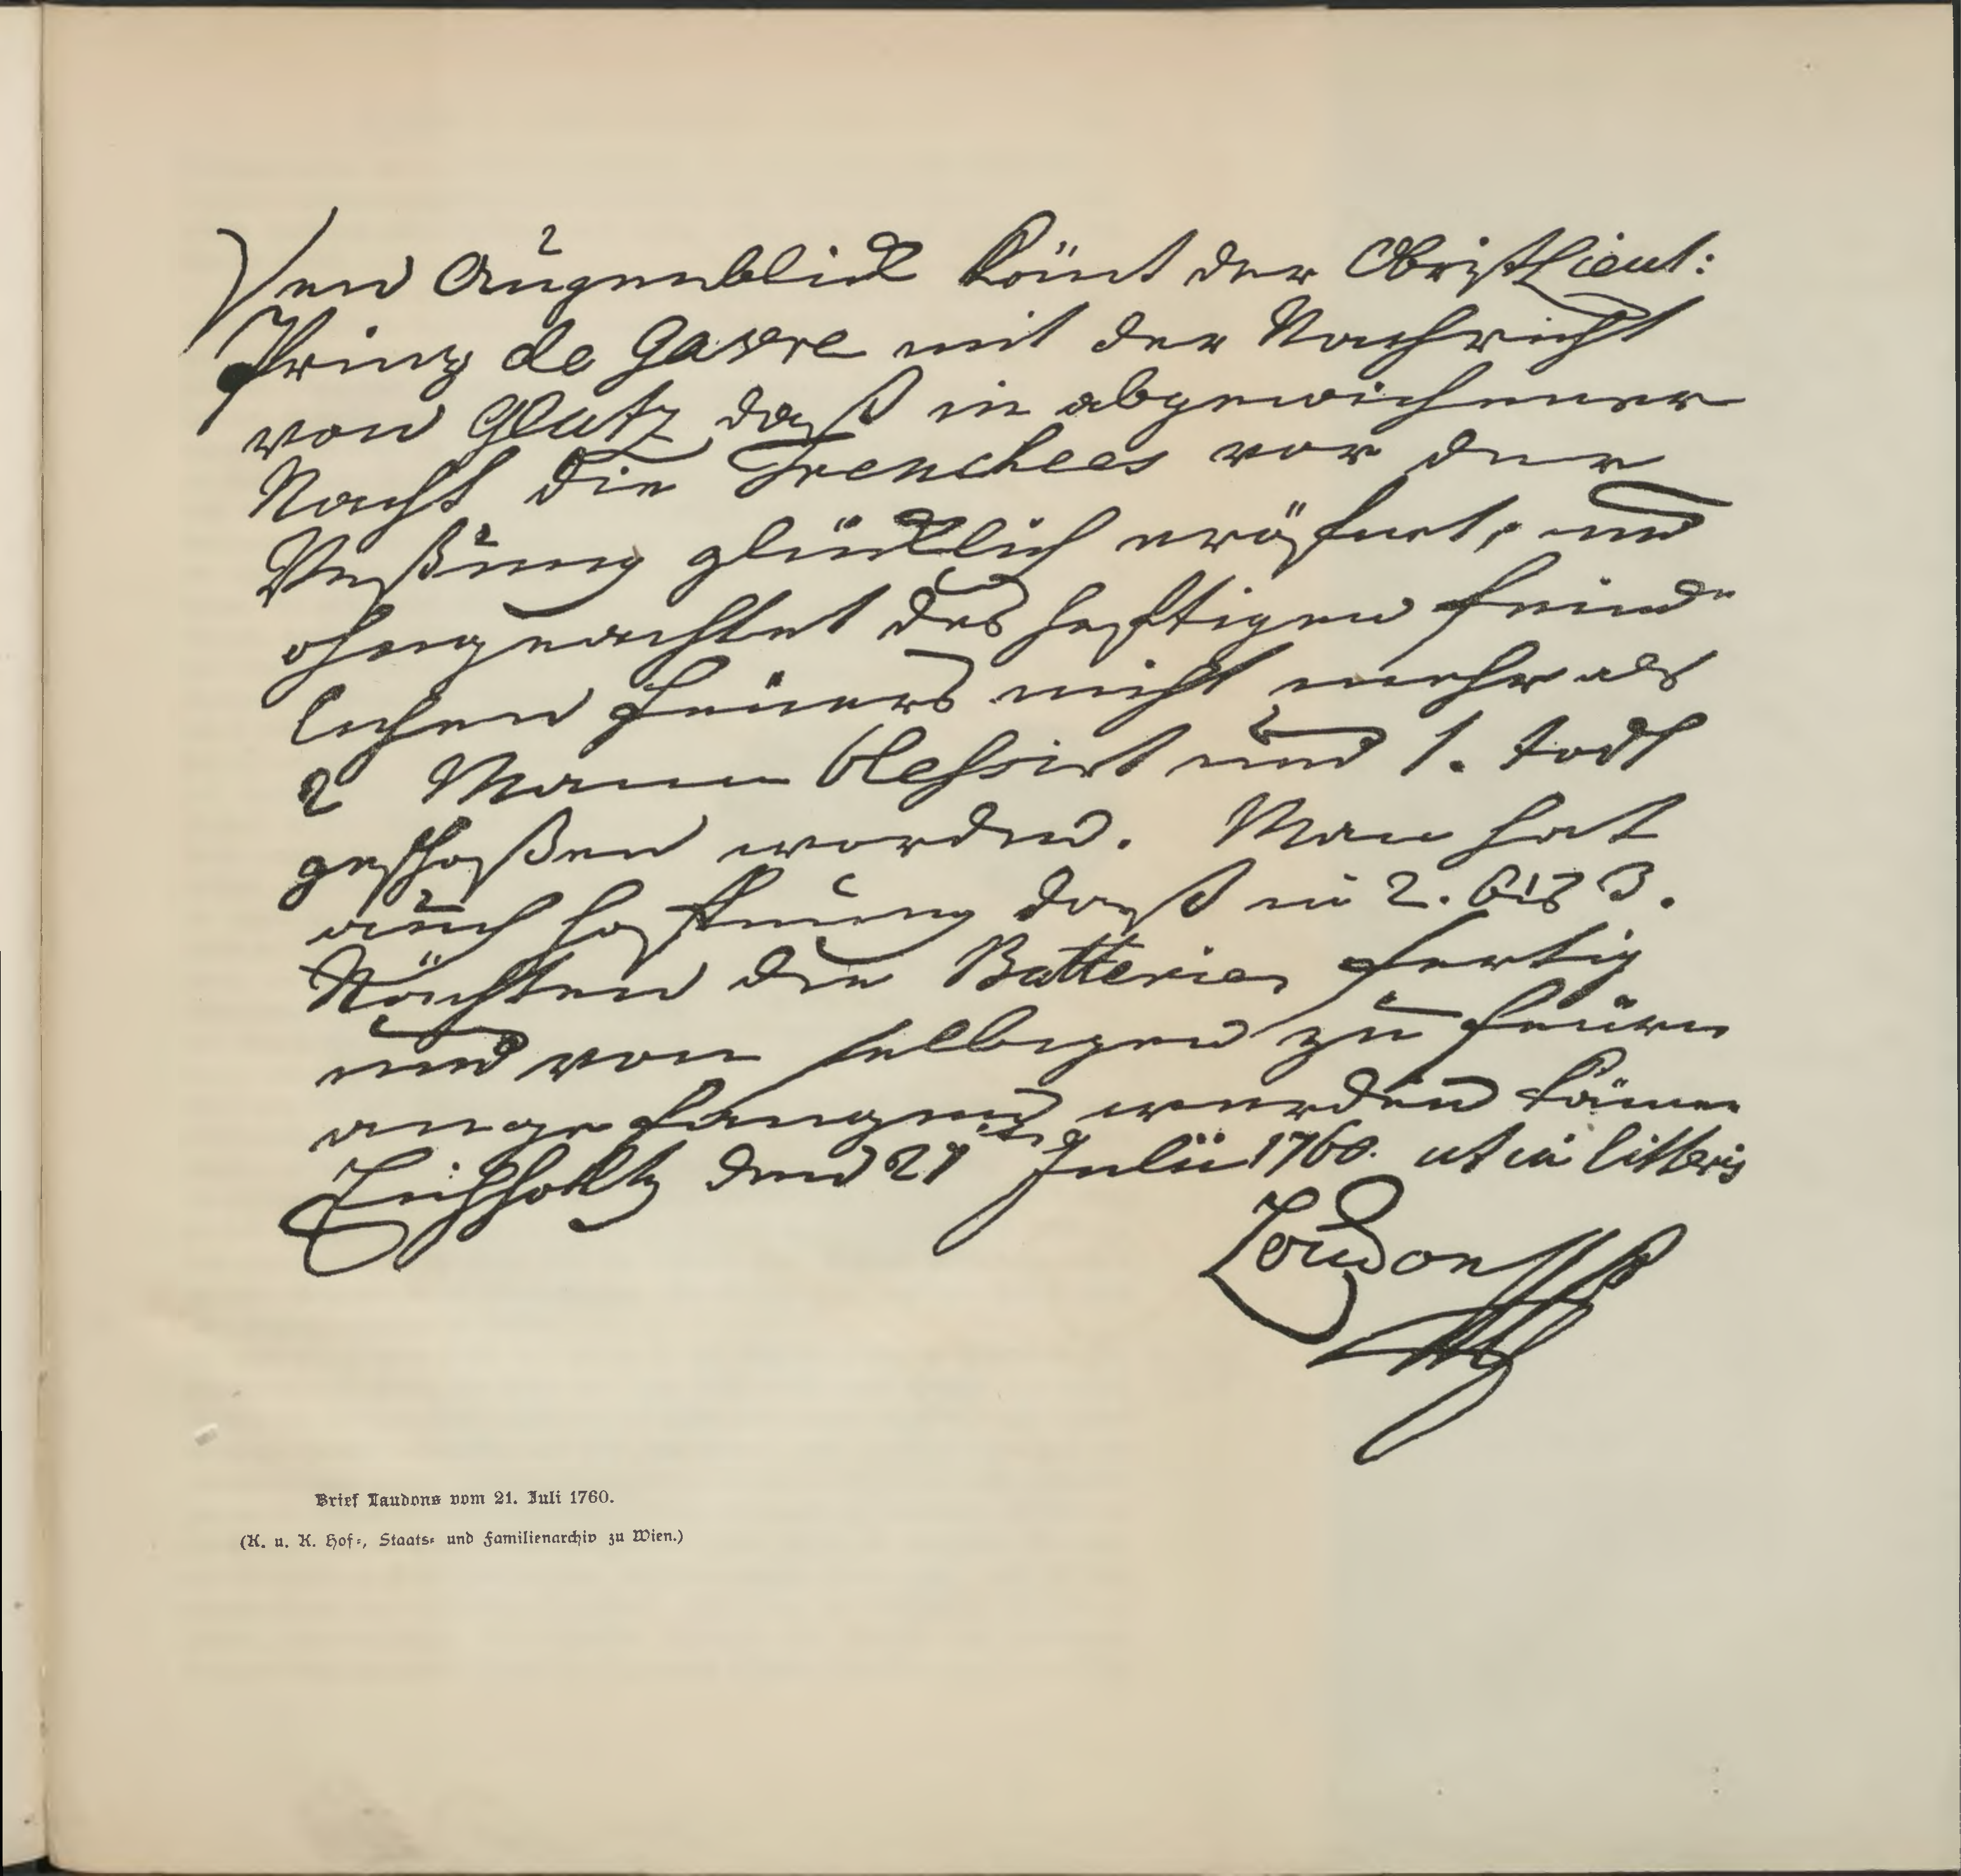 Den Augenblick kömt der ObristLieut:
Prinz de Gavre mit der Nachricht
von Glatz, daß in abgewichener
Nacht die Trenchees vor der
Vestung glücklich eröfnet, und
ohngeachtet des heftigen feind-
lichen feüers nicht mehr als
2 Mann blessirt und 1. todt
geschoßen worden. Man hat
auch hofnung daß in 2. bis 3.
Nächten die Batterien fertig
und von selbigen zu feüern
angefangen werden könne
Eichholtz den 21 Julii 1760. ut in litteris
Loudon
Brief Laudons vom 21. Juli 1760.
(K. u. K. Hof-, Staats- und Familienarchiv zu Wien.)